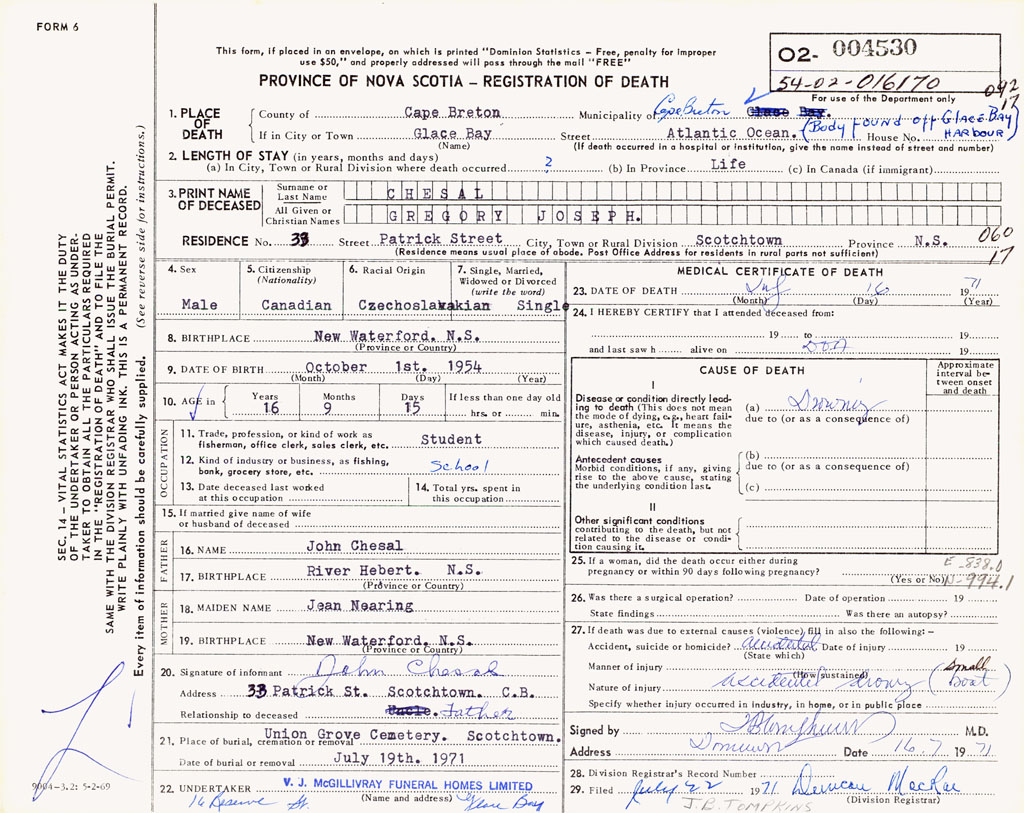 FORM 6
This form, if placed in an envelope, on which is printed "Dominion Statistics – Free, penalty for improper
use $50," and properly addressed will pass through the mail "FREE"
PROVINCE OF NOVA SCOTIA – REGISTRATION OF DEATH
O2- 004530
54-02-016170
For use of the Department only
092
17
1. PLACE OF DEATH
County of Cape Breton Municipality of Cape Breton Glace Bay.
If in City or Town Glace Bay Street Atlantic Ocean. House No. (BODY FOUND OFF GLACE BAY HARBOUR)
(Name) (If death occurred in a hospital or institution, give the name instead of street and number)
2. LENGTH OF STAY (in years, months and days)
(a) In City, Town or Rural Division where death occurred ? (b) In Province Life (c) In Canada (if immigrant)
3. PRINT NAME OF DECEASED
Surname or Last Name CHESAL
All Given or Christian Names GREGORY JOSEPH.
RESIDENCE No. 33 Street Patrick Street City, Town or Rural Division Scotchtown Province N.S.
(Residence means usual place of abode. Post Office Address for residents in rural parts not sufficient)
060
17
4. Sex
Male
5. Citizenship (Nationality)
Canadian
6. Racial Origin
Czechoslavakian
7. Single, Married, Widowed or Divorced (write the word)
Single
8. BIRTHPLACE New Waterford. N.S.
(Province or Country)
9. DATE OF BIRTH October 1st. 1954
(Month) (Day) (Year)
10. AGE in
Years Months Days If less than one day old
16 9 15 hrs. or min.
OCCUPATION
11. Trade, profession, or kind of work as fisherman, office clerk, sales clerk, etc. Student
12. Kind of industry or business, as fishing, bank, grocery store, etc. School
13. Date deceased last worked at this occupation
14. Total yrs. spent in this occupation
15. If married give name of wife or husband of deceased
FATHER
16. NAME John Chesal
17. BIRTHPLACE River Hebert. N.S.
(Province or Country)
MOTHER
18. MAIDEN NAME Jean Nearing
19. BIRTHPLACE New Waterford. N.S.
(Province or Country)
20. Signature of informant John Chesal
Address 33 Patrick St. Scotchtown. C.B.
Relationship to deceased Uncle. Father
21. Place of burial, cremation or removal Union Grove Cemetery. Scotchtown.
Date of burial or removal July 19th. 1971
22. UNDERTAKER V. J. McGILLIVRAY FUNERAL HOMES LIMITED
(Name and address)
16 Reserve St. Glace Bay
MEDICAL CERTIFICATE OF DEATH
23. DATE OF DEATH July 16 1971
(Month) (Day) (Year)
24. I HEREBY CERTIFY that I attended deceased from:
19 to 19
and last saw h alive on DOA 19
CAUSE OF DEATH
Approximate interval between onset and death
I
Disease or condition directly leading to death (This does not mean the mode of dying, e.g., heart failure, asthenia, etc. It means the disease, injury, or complication which caused death.)
(a) Drowning
due to (or as a consequence of)
Antecedent causes
Morbid conditions, if any, giving rise to the above cause, stating the underlying condition last.
(b)
due to (or as a consequence of)
(c)
II
Other significant conditions
contributing to the death, but not related to the disease or condition causing it.
25. If a woman, did the death occur either during pregnancy or within 90 days following pregnancy?
(Yes or No)
E-838.0
N-994.1
26. Was there a surgical operation? Date of operation 19
State findings Was there an autopsy?
27. If death was due to external causes (violence) fill in also the following: –
Accident, suicide or homicide? accidental Date of injury 19
(State which)
Manner of injury
(How sustained)
Nature of injury accidental drowning (Small Boat)
Specify whether injury occurred in industry, in home, or in public place
Signed by M.D.
Address Dominion Date 16.7 1971
28. Division Registrar's Record Number
29. Filed July 22 1971 Duncan MacRae
(Division Registrar)
J.B. TOMPKINS
SEC. 14 – VITAL STATISTICS ACT MAKES IT THE DUTY
OF THE UNDERTAKER OR PERSON ACTING AS UNDER-
TAKER TO OBTAIN ALL THE PARTICULARS REQUIRED
IN THE "REGISTRATION OF DEATH" AND TO FILE THE
SAME WITH THE DIVISION REGISTRAR WHO SHALL ISSUE THE BURIAL PERMIT.
WRITE PLAINLY WITH UNFADING INK. THIS IS A PERMANENT RECORD.
Every item of information should be carefully supplied. (See reverse side for instructions.)
9004-3.2: 5-2-69